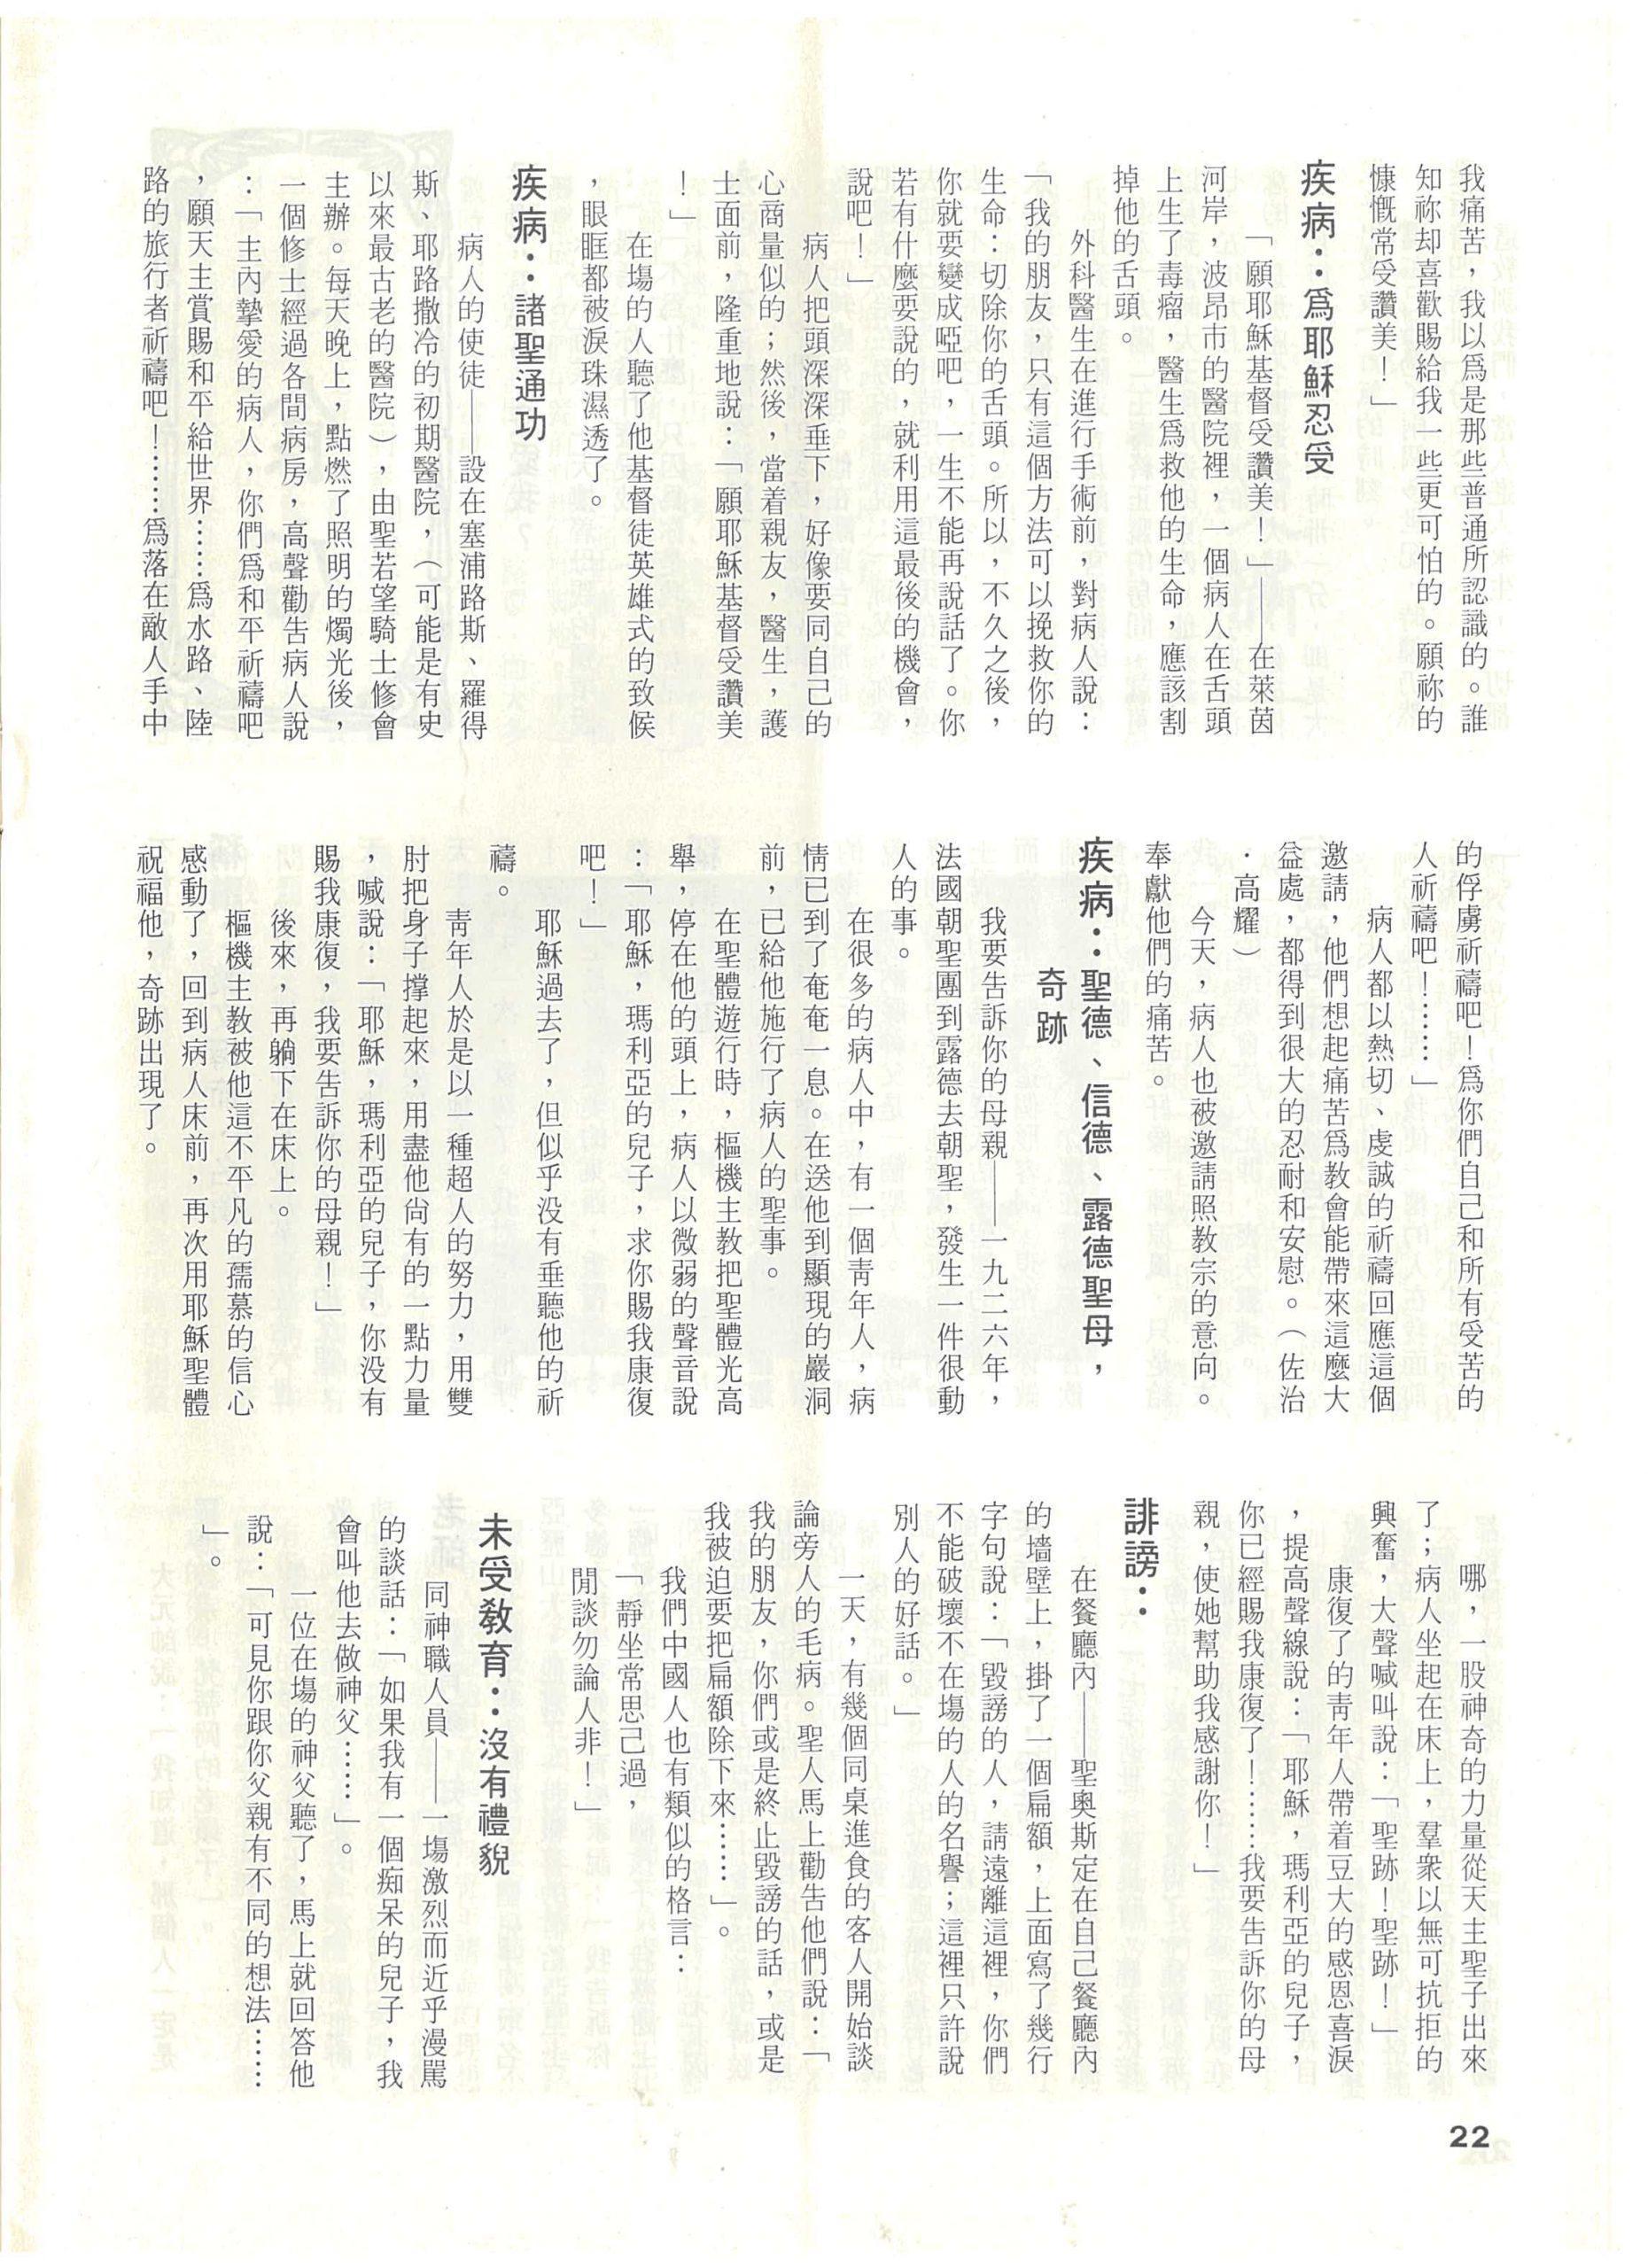 我痛苦，我以爲是那些普通所認識的。誰
知祢却喜歡賜給我一些更可怕的。願祢的
慷慨常受讚美！」
疾病：爲耶穌忍受
「願耶穌基督受讚美！」——在萊茵
河岸，波昂市的醫院裡，一個病人在舌頭
上生了毒瘤，醫生爲救他的生命，應該割
掉他的舌頭。
外科醫生在進行手術前，對病人說：
「我的朋友，只有這個方法可以挽救你的
生命：切除你的舌頭。所以，不久之後，
你就要變成啞吧，一生不能再說話了。你
若有什麼要說的，就利用這最後的機會，
說吧！」
病人把頭深深垂下，好像要同自己的
心商量似的；然後，當着親友，醫生，護
士面前，隆重地說：「願耶穌基督受讚美
！」
在塲的人聽了他基督徒英雄式的致候
，眼眶都被淚珠濕透了。
疾病：諸聖通功
病人的使徒——設在塞浦路斯、羅得
斯、耶路撒冷的初期醫院，（可能是有史
以來最古老的醫院），由聖若望騎士修會
主辦。每天晚上，點燃了照明的燭光後，
一個修士經過各間病房，高聲勸告病人說
：「主內摯愛的病人，你們爲和平祈禱吧
，願天主賞賜和平給世界……爲水路、陸
路的旅行者祈禱吧！……爲落在敵人手中
的俘虜祈禱吧！爲你們自己和所有受苦的
人祈禱吧！……」
病人都以熱切、虔誠的祈禱回應這個
邀請，他們想起痛苦爲教會能帶來這麼大
益處，都得到很大的忍耐和安慰。（佐治
．高耀）
今天，病人也被邀請照教宗的意向。
奉獻他們的痛苦。
疾病：聖德、信德、露德聖母，
奇跡
我要告訴你的母親——一九二六年，
法國朝聖團到露德去朝聖，發生一件很動
人的事。
在很多的病人中，有一個靑年人，病
情已到了奄奄一息。在送他到顯現的巖洞
前，已給他施行了病人的聖事。
在聖體遊行時，樞機主教把聖體光高
舉，停在他的頭上，病人以微弱的聲音說
：「耶穌，瑪利亞的兒子，求你賜我康復
吧！」
耶穌過去了，但似乎没有垂聽他的祈
禱。
靑年人於是以一種超人的努力，用雙
肘把身子撐起來，用盡他尙有的一點力量
，喊說：「耶穌，瑪利亞的兒子，你没有
賜我康復，我要告訴你的母親！」
後來，再躺下在床上。
樞機主教被他這不平凡的孺慕的信心
感動了，回到病人床前，再次用耶穌聖體
祝福他，奇跡出現了。
哪，一股神奇的力量從天主聖子出來
了；病人坐起在床上，羣衆以無可抗拒的
興奮，大聲喊叫說：「聖跡！聖跡！」
康復了的靑年人帶着豆大的感恩喜淚
，提高聲線說：「耶穌，瑪利亞的兒子，
你已經賜我康復了！……我要告訴你的母
親，使她幫助我感謝你！」
誹謗：
在餐廳內——聖奧斯定在自己餐廳內
的墻壁上，掛了一個扁額，上面寫了幾行
字句說：「毀謗的人，請遠離這裡，你們
不能破壞不在塲的人的名譽；這裡只許說
別人的好話。」
一天，有幾個同桌進食的客人開始談
論旁人的毛病。聖人馬上勸告他們說：「
我的朋友，你們或是終止毀謗的話，或是
我被迫要把扁額除下來……」。
我們中國人也有類似的格言：
「靜坐常思己過，
閒談勿論人非！」
未受教育：沒有禮貌
同神職人員——一塲激烈而近乎漫罵
的談話：「如果我有一個痴呆的兒子，我
會叫他去做神父……」。
一位在塲的神父聽了，馬上就回答他
說：「可見你跟你父親有不同的想法……
」。
22